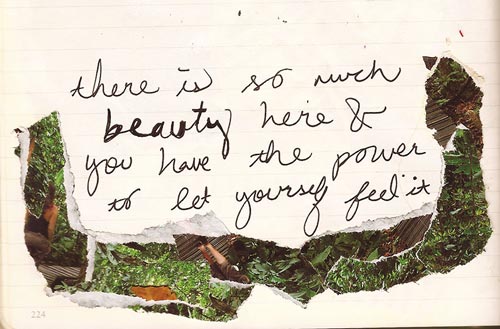 there is so much
beauty here &
you have the power
to let yourself feel it
224